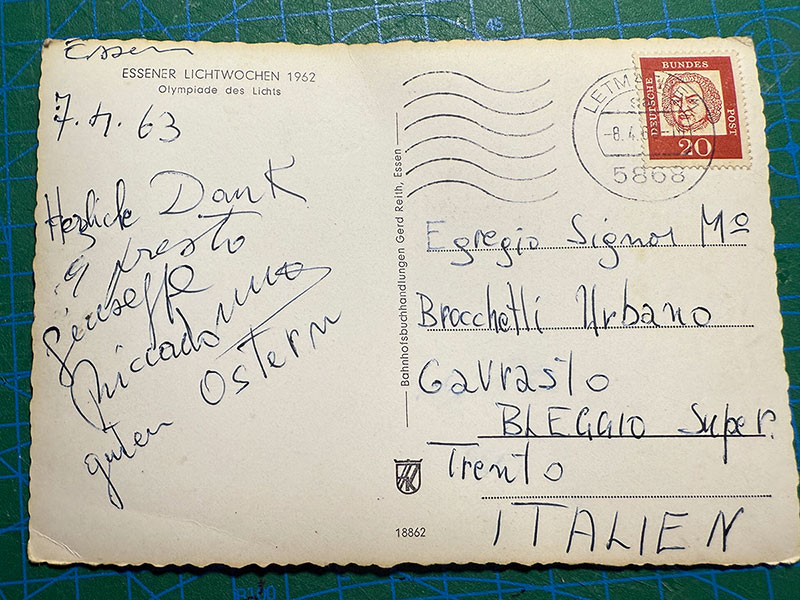 Essen
ESSENER LICHTWOCHEN 1962
Olympiade des Lichts
7.4.63
Herzliche Dank
a presto
Giuseppe
Riccadonna
guten Ostern
Bahnhofsbuchhandlungen Gerd Reith, Essen
18862
DEUTSCHE BUNDES POST
20
LETMA
-8.4.6
5868
Egregio Signor Mº
Brocchetti Urbano
Gavrasto
BLEGGIO Super.
Trento
ITALIEN
45